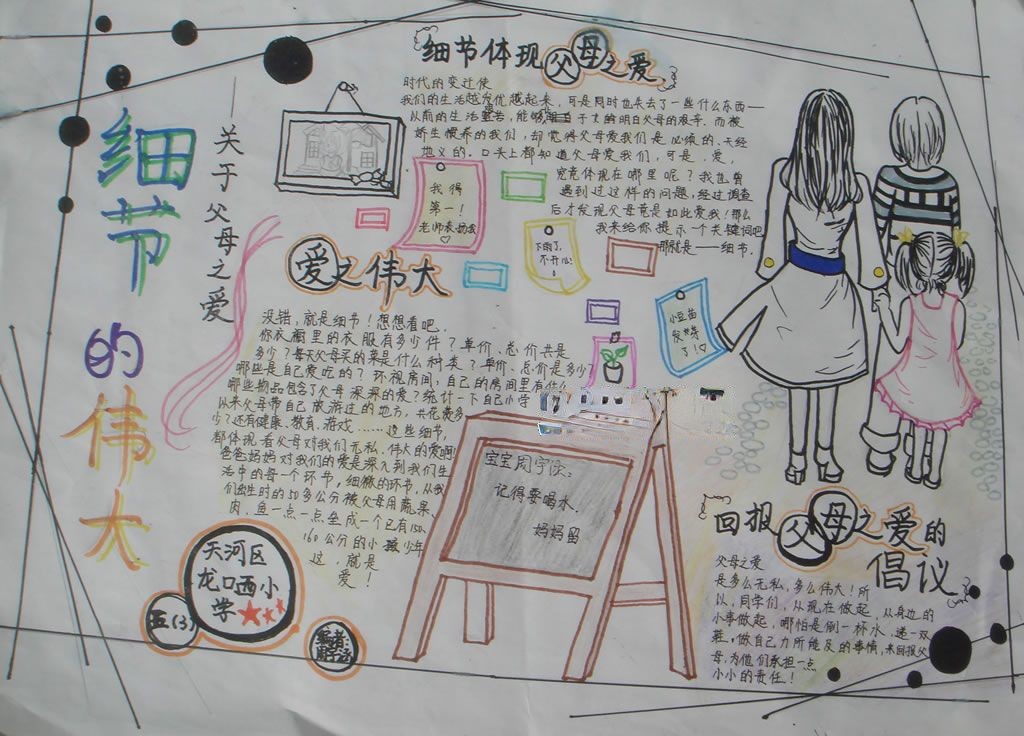 细节的伟大
——关于父母之爱
细节体现父母之爱
时代的变迁使
我们的生活越发优越起来，可是同时也失去了一些什么东西——
从前的生活艰苦，能够
明白父母的艰辛。而被
娇生惯养的我们，却觉得父母爱我们是必须的、天经
地义的。口头上都知道父母爱我们，可是，爱，
究竟体现在哪里呢？我也曾
遇到过这样的问题，经过调查
后才发现父母竟是如此爱我！那么
我来给你提示一个关键词吧
那就是——细节。
我得
第一！
老师表扬我
下雨了，
不开心！
小豆苗
发芽
了！
爱之伟大
没错，就是细节！想想看吧，
你衣橱里的衣服有多少件？单价、总价共是
多少？每天父母买的菜是什么种类？单价、总价是多少？
哪些是自己爱吃的？环视房间，自己的房间里有什么
哪些物品包含了父母深深的爱？统计一下自己小学
以来父母带自己旅游过的地方，共花费多
少？还有健康、教育、游戏……这些细节，
都体现着父母对我们无私、伟大的爱啊！
爸爸妈妈对我们的爱是深入到我们生
活中的每一个环节，细微的环节，从我
们出生时的50多公分被父母用蔬果、
肉、鱼一点一点垒成一个已有150、
160公分的小孩少年
这，就是
爱！
宝宝周宇
记得要喝水。
妈妈留
天河区
龙口西小
学
五(3)
编者:
回报父母之爱的
倡议
父母之爱
是多么无私，多么伟大！所
以，同学们，从现在做起，从身边的
小事做起，哪怕是倒一杯水，递一双
鞋，做自己力所能及的事情，来回报父
母，为他们承担一点
小小的责任！